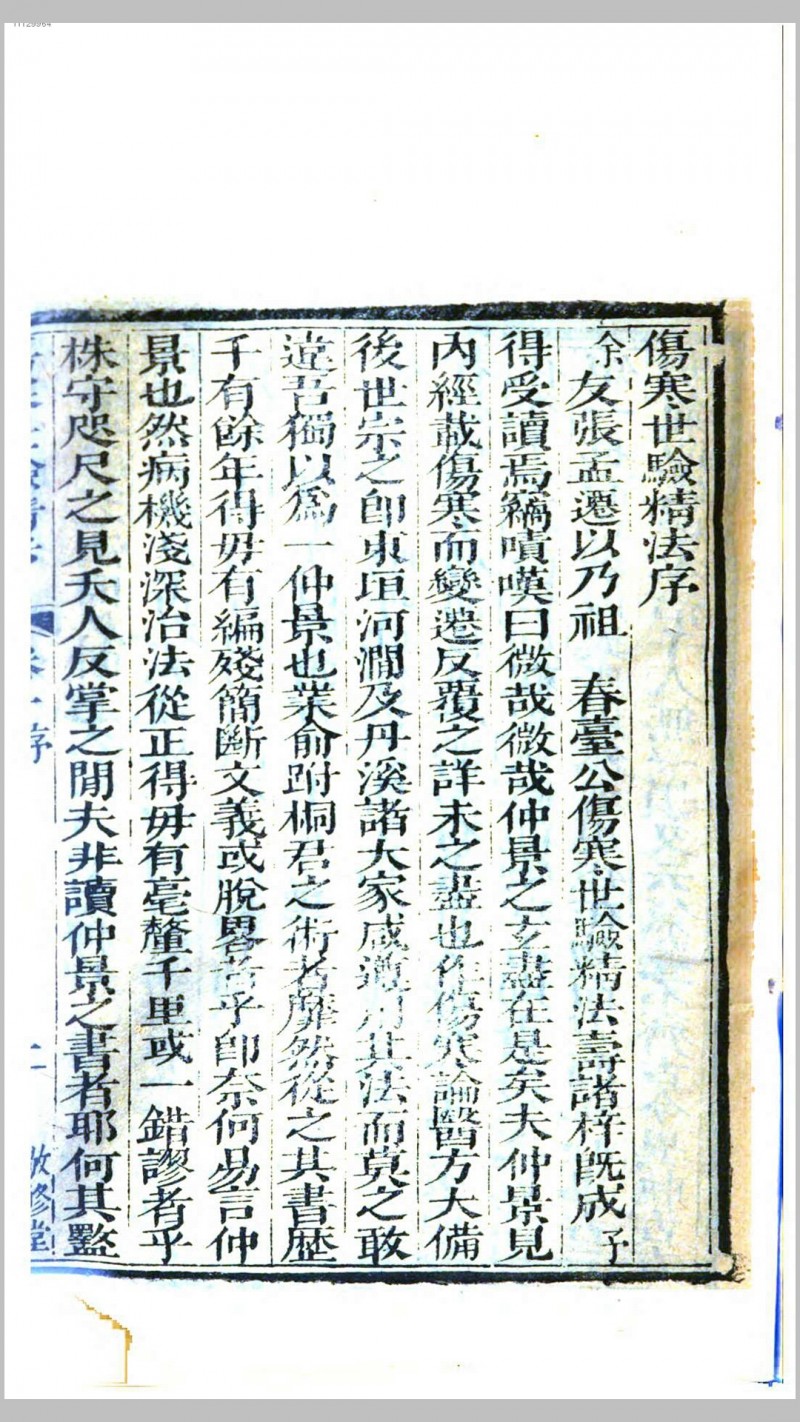 傷寒世驗精法序
余友張孟遷以乃祖　春臺公傷寒世驗精法壽諸梓旣成予
得受讀焉竊嘖嘆曰微哉微哉仲景之玄盡在是矣夫仲景見
內經載傷寒而變遷反覆之詳未之盡也作傷寒論醫方大備
後世宗之卽東垣河澗及丹溪諸大家咸遵用其法而莫之敢
違吾獨以爲一仲景也業俞跗桐君之術者靡然從之其書歷
千有餘年得毋有編殘簡斷文義或脫畧者乎卽奈何易言仲
景也然病機淺深治法從正得毋有毫釐千里或一錯謬者乎
株守咫尺之見夭人反掌之閒夫非讀仲景之書者耶何其盭
卷一序
二
敬修堂